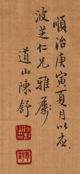 順治庚寅夏月似應
波芝仁兄雅屬
道山陳舒